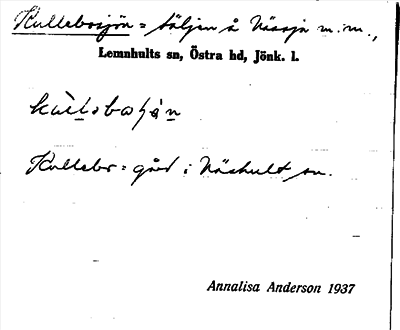 Kullebosjön = täljen å Nässja m.m.,
Lemnhults sn, Östra hd, Jönk. l.
Kullebo = gård i Näshult sn.
Annalisa Anderson 1937